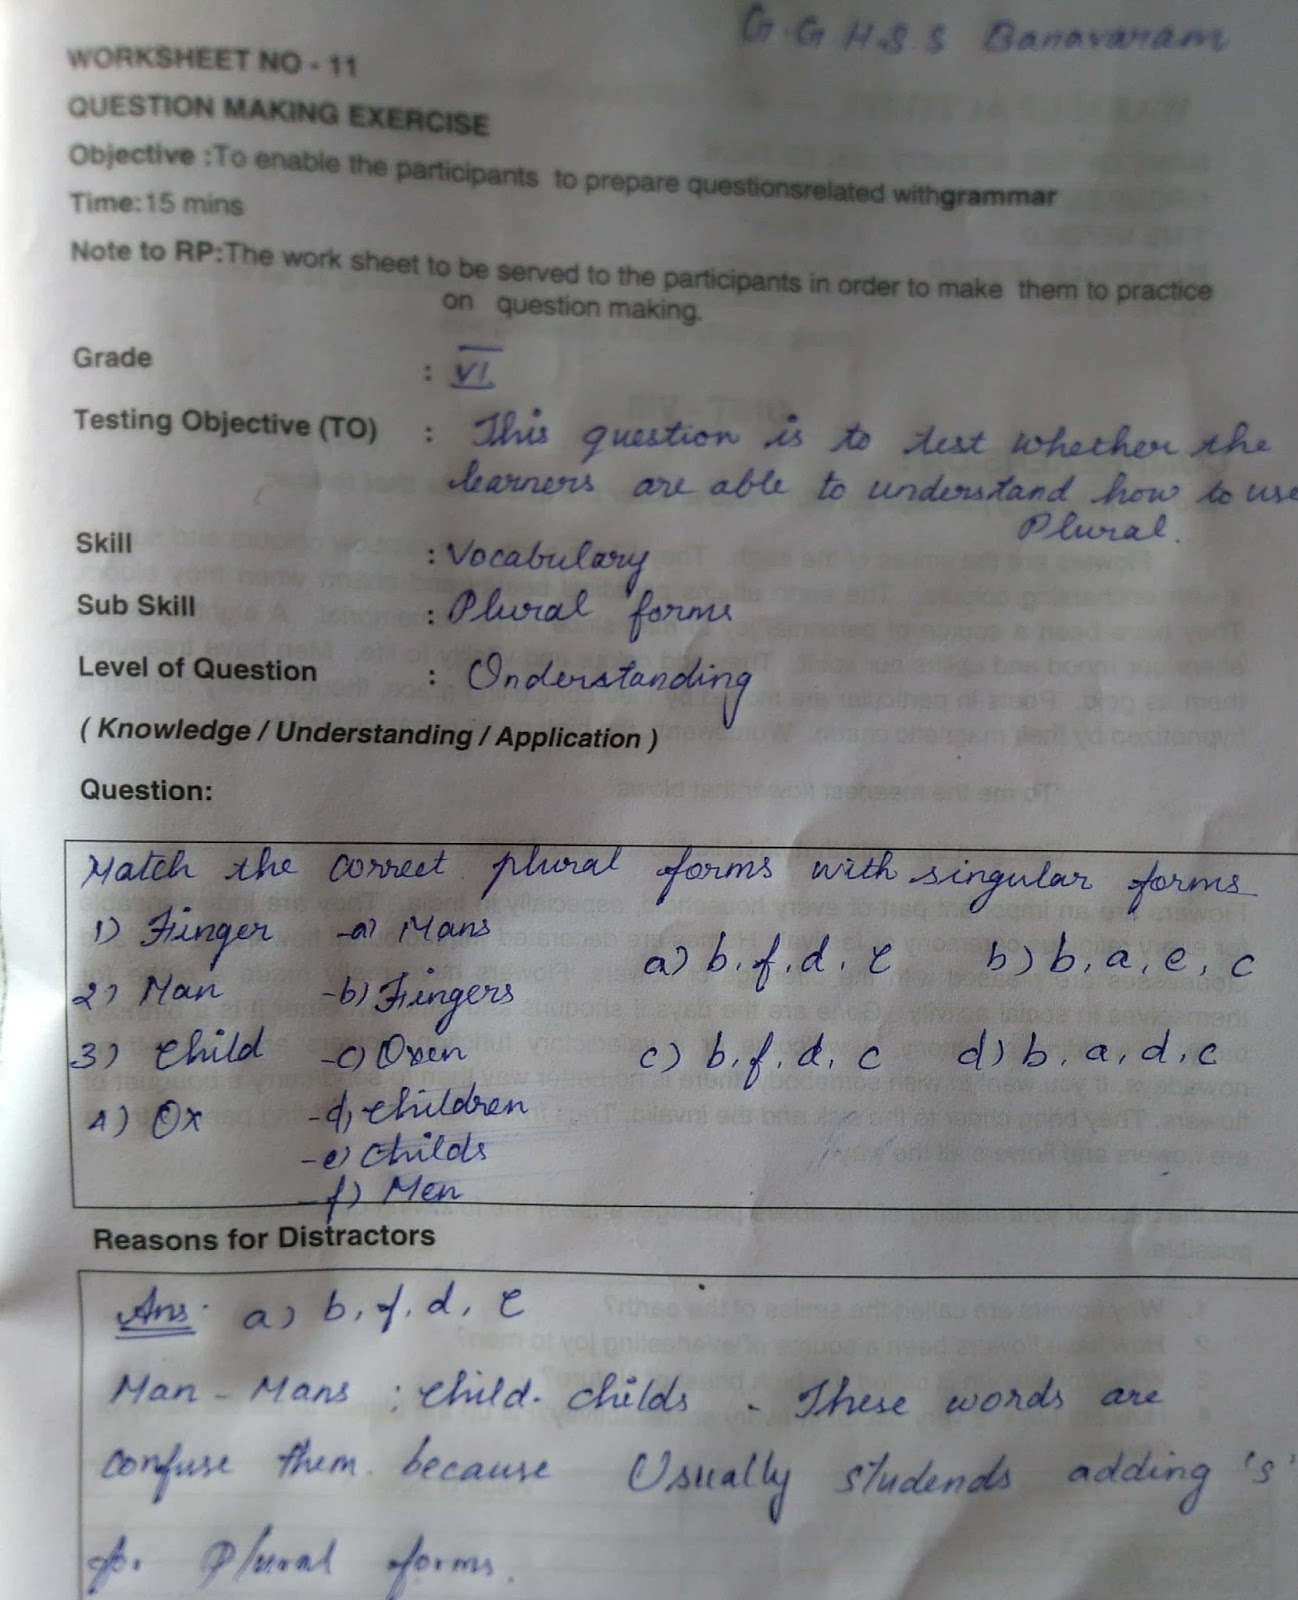 G.G H.S.S Banavaram
WORKSHEET NO - 11
QUESTION MAKING EXERCISE
Objective :To enable the participants to prepare questionsrelated withgrammar
Time:15 mins
Note to RP:The work sheet to be served to the participants in order to make them to practice
on question making.
Grade : VI
Testing Objective (TO) : This question is to test whether the
learners are able to understand how to use
Plural.
Skill : Vocabulary
Sub Skill : Plural forms
Level of Question : Understanding
( Knowledge / Understanding / Application )
Question:
Match the correct plural forms with singular forms
1) Finger - a) Mans
a) b, f, d, c b) b, a, e, c
2) Man - b) Fingers
3) Child - c) Oxen
c) b, f, d, c d) b, a, d, c
4) Ox - d) Children
- e) Childs
- f) Men
Reasons for Distractors
Ans. a) b, f, d, c
Man - Mans : Child - childs - These words are
confuse them because Usually studends adding 's'
for Plural forms.